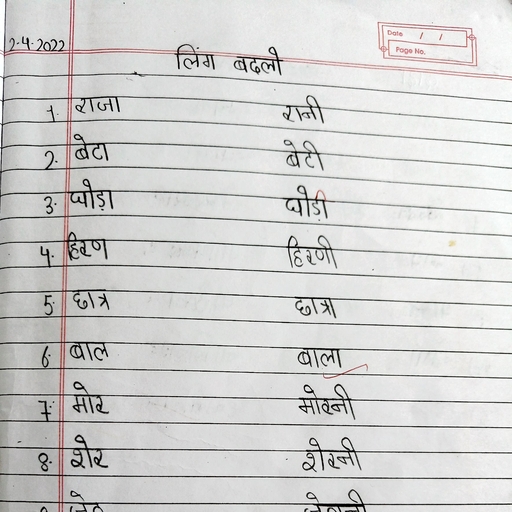 2.4.2022
Date / /
Page No.
लिंग बदलो
1. राजा रानी
2. बेटा बेटी
3. घोड़ा घोड़ी
4. हिरण हिरणी
5. छात्र छात्रा
6. बाल बाला
7. मोर मोरनी
8. शेर शेरनी